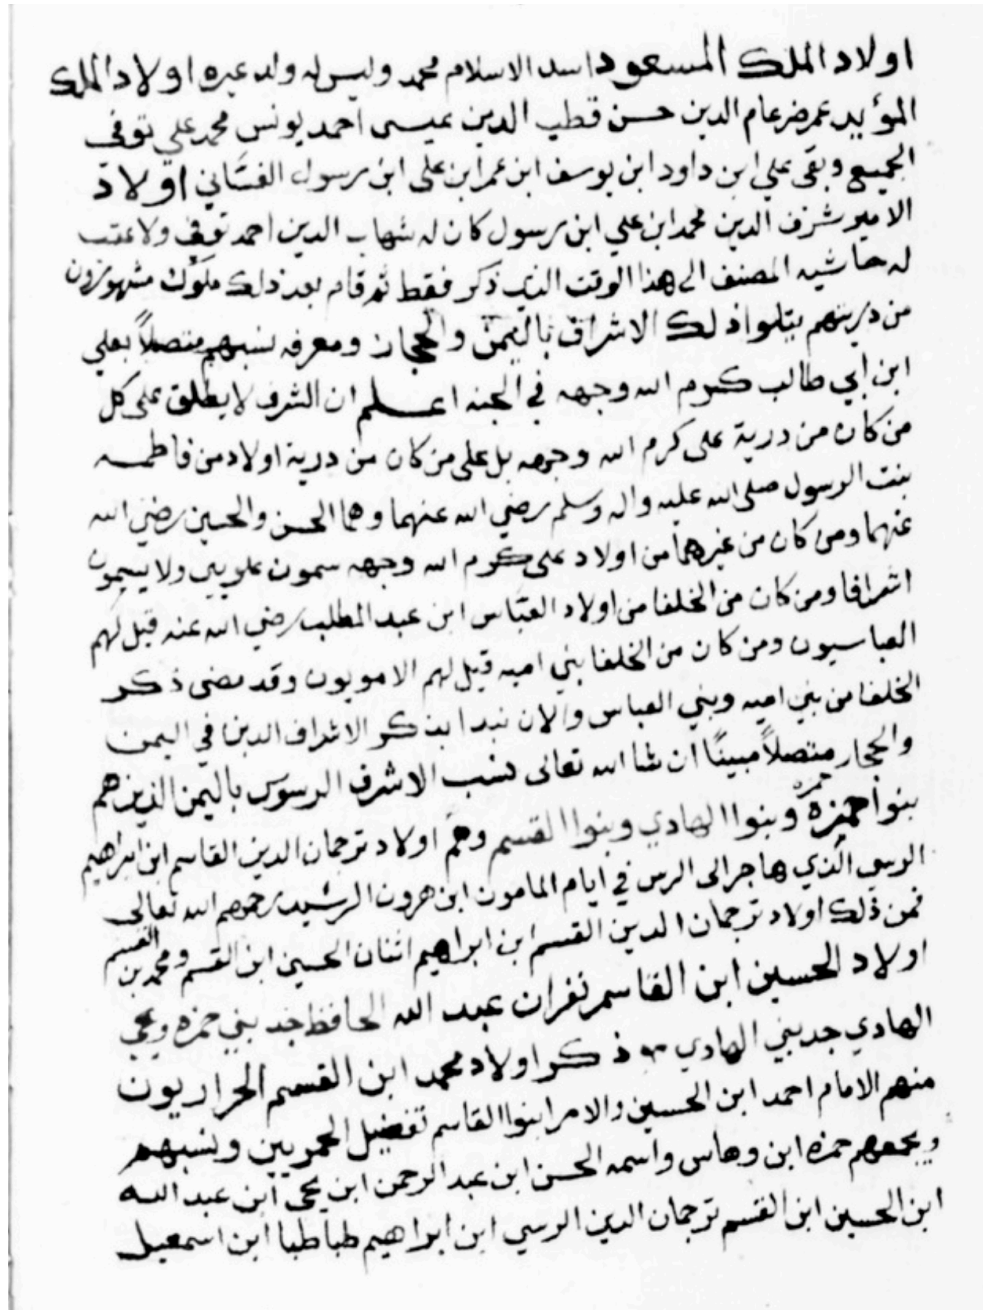 اولاد الملك المسعود اسد الاسلام محمد وليس له ولد غيره اولاد الملك
المؤيد عمر ضرغام الدين حسن قطب الدين عيسى احمد يونس محمد علي توفي
الجميع وبقى علي ابن داود ابن يوسف ابن عمر ابن على ابن رسول الغسّاني اولاد
الامير شرف الدين محمد ابن علي ابن رسول كان له شهاب الدين احمد توفى ولا عقب
له حاشيه المصنف الى هذا الوقت الذي ذكر فقط ثم قام بعد ذلك ملوك مشهورون
من ذريتهم يتلوا ذلك الاشراف باليمن والحجاز ومعرفه نسبهم متصلاً بعلي
ابن ابي طالب كرم الله وجهه في الجنه اعلم ان الشرف لا يطلق على كل
من كان من درية على كرم الله وجهه بل على من كان من درية اولاد من فاطمه
بنت الرسول صلى الله عليه واله وسلم رضي الله عنهما وهما الحسن والحسين رضي الله
عنهما ومن كان من غيرهما من اولاد على كرم الله وجهه سمون علويين ولا يسمون
اشرافا ومن كان من الخلفا من اولاد العبّاس ابن عبد المطلب رضي الله عنه قيل لهم
العباسيون ومن كان من الخلفا بني اميه قيل لهم الامويون وقد مضى ذكر
الخلفا من بني اميه وبني العباس والان نبدا بذكر الاشراف الذين في اليمن
والحجاز متصلاً مبينًا ان شا الله تعالى نسب الاشرف الرسوں باليمن الذين هم
بنوا حمزة حمزه وبنوا الهادي وبنوا القسم وهم اولاد ترجمان الدين القاسم ابن ابراهيم
الرسي الذي هاجر الى الرس في ايام المامون ابن هرون الرشيد رحمهم الله تعالى
فمن ذلك اولاد ترجمان الدين القسم ابن ابراهيم اثنان الحسين ابن القسم ومحمد بن القسم
اولاد الحسين ابن القاسم نفران عبد الله الحافظ جد بني حمزه ويحيى
الهادي جد بني الهادي ذكر اولاد محمد ابن القسم الحراريون
منهم الامام احمد ابن الحسين والامرا بنوا القاسم تفضيل الحمزيين ونسبهم
ويجمعهم حمزه ابن وهاس واسمه الحسن ابن عبد الرحمن ابن يحيى ابن عبد الله
ابن الحسين ابن القسم ترجمان الدين الرسي ابن ابراهيم طباطبا ابن اسمعيل